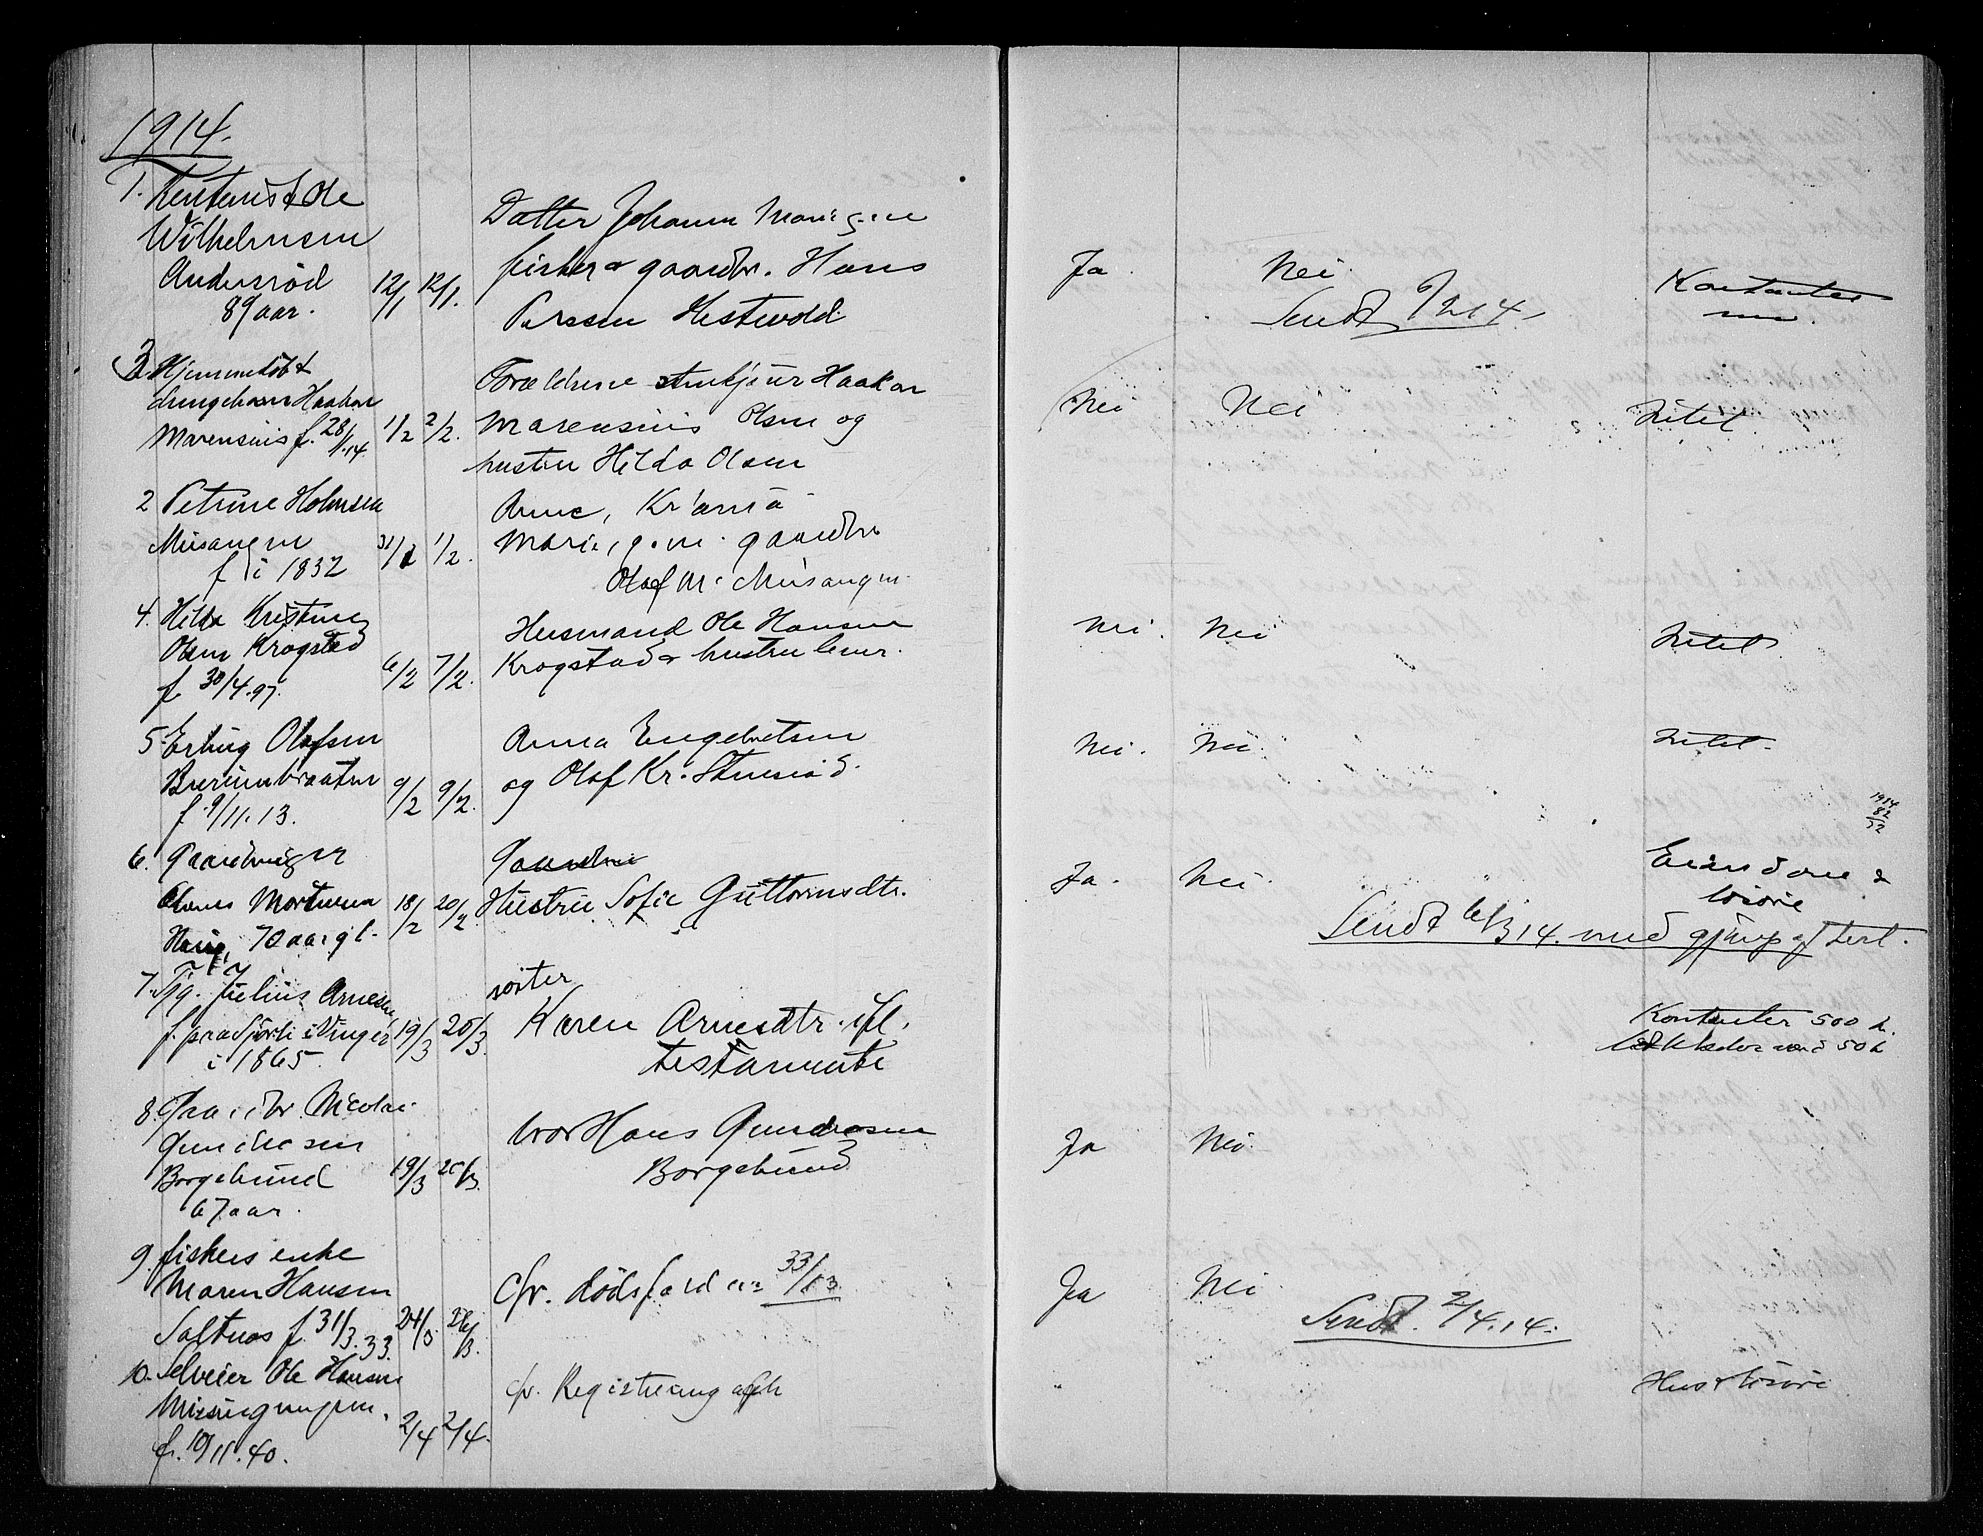 1914.
1. Rentenist Ole
Wilhelmsen
Andersröd
89 aar.
12/1 12/1.
Datter Johanne Marie g. m
fisker & gaardbr. Hans
Hestevold
Ja. Nei.
Sendt 6/2 14.
Kontanter
3. Hjemmedöbt
drengebarn Haakon
Marensius f. 28/1.14
1/2 2/2.
Forældrene Haakon
Marensius Olsen og
hustru Hilda Olsen
Nei Nei Intet
2 Petrine Holmsen
Missingen
f i 1832
31/1 1/2.
Anne, Kr'ania
Marie, g. m. gaardbr
Olaf M. Missingen.
4. Hilda Kristine
Olsen Krogstad
f. 30/4.97.
6/2 7/2.
Husmand Ole Hansen
Krogstad & hustru
Nei. Nei Intet
5. Erling Olafsen
f. 9/11.13.
9/2 9/2.
Anna Engebretsen
og Olaf Kr.
Nei. Nei. Intet.
1914
82
32
6. Gaardbruger
Mortensen
Haug, 70 aar gl.
18/2 20/2
Hustru Sofie Guttormsdtr.
Ja. Nei.
Eiendom &
lösöre
Sendt 6/3 14. med gjenp af test.
7. Tjg. Julius Arnesen
f. paa i Vinger
i 1865.
19/3 20/3.
söster
Karen Arnesdtr. ifl.
testamente
Kontanter 500 k.
50 k
8. Gaardbr. Nicolai
Gundersen
Borgebund
67 aar.
19/3 20/3.
bror Hans Gundersen
Borgebund
Ja Nei.
9. fiskers enke
Maren Hansen
Saltnes f. 31/3.33.
24/3 26/3.
Cfr. dödsfald no 33/13
Ja Nei
Sendt. 2/4.14.
10. Selveier Ole Hansen
f. 10/11.40.
2/4 2/4.
cfr. Registrering
Hus & lösöre